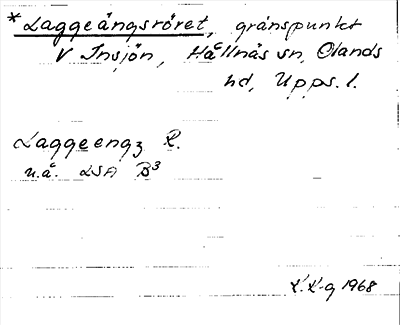 *Laggeängsröret, gränspunkt
V Insjön, Hållnäs sn, Olands
hd, Upps. l.
Laggeengz R.
u.å. LSA B³
K.K-g 1968